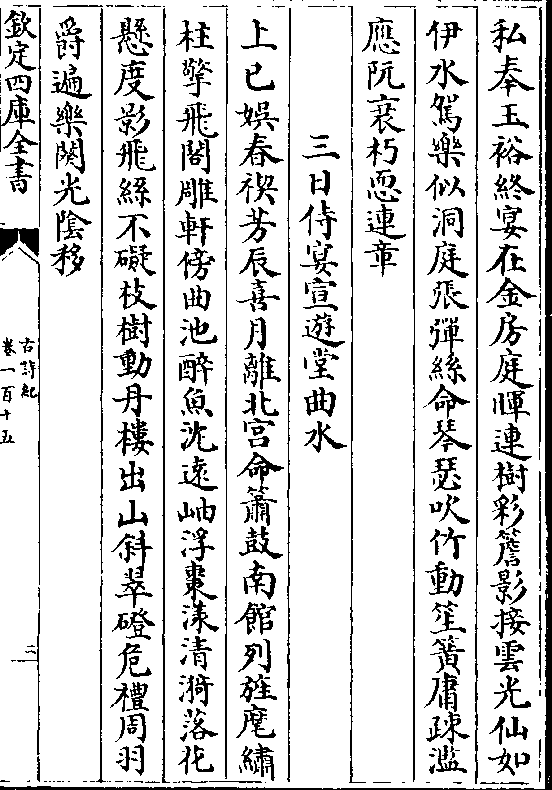 私奉玉裕終宴在金房庭暉連樹彩簷影接雲光仙如
伊水駕樂似洞庭張彈絲命琴瑟吹竹動笙簧庸疎濫
應阮衰朽恧連章
三日侍宴宣遊堂曲水
上巳娯春禊芳辰喜月離北宮命簫鼓南館列旌麾繡
柱擎飛閣雕軒傍曲池醉魚沈遠岫浮棗漾清漪落花
懸度影飛絲不礙枝樹動丹樓出山斜翠磴危禮周羽
爵遍樂闋光陰移
欽定四庫全書
古詩紀
卷一百十五
三